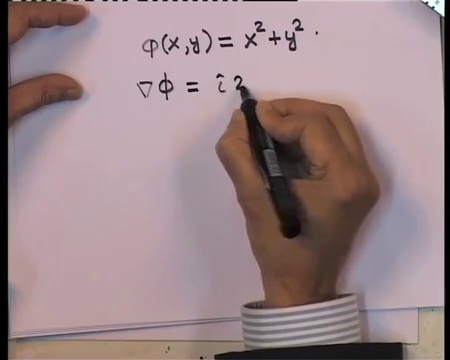 φ(x,y) = x² + y².
∇φ = î 2